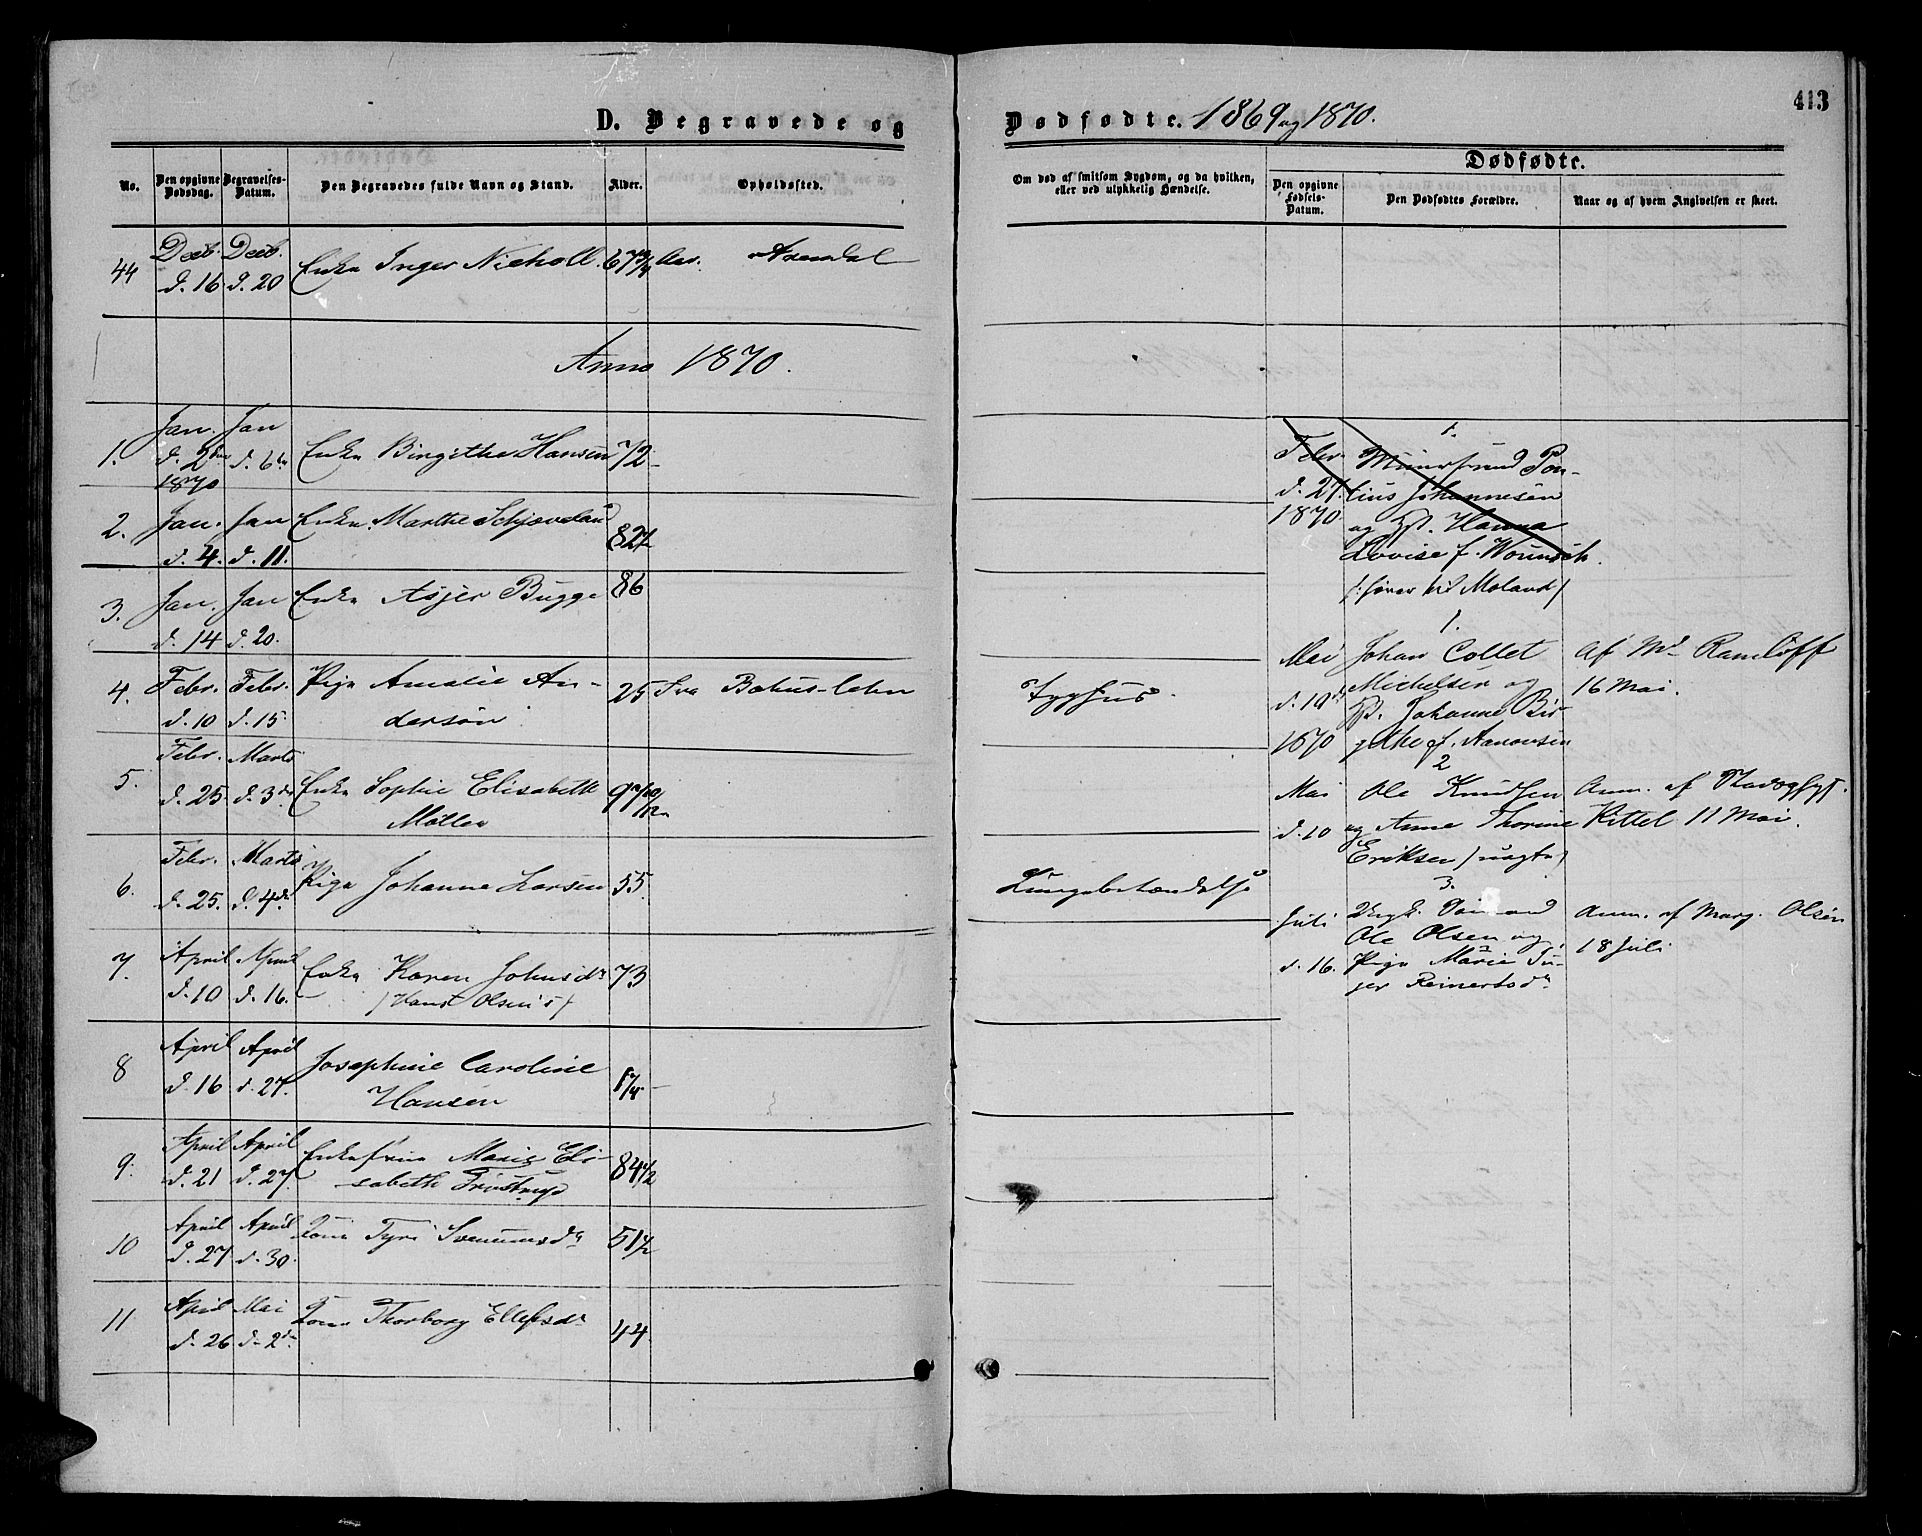 D. Begravede og
Dødfødte. 1869 og 1870.
413
No.
Den opgivne Dødsdag.
Begravelses-Datum.
Den Begravedes fulde Navn og Stand.
Alder.
Opholdssted.
Om død af smitsom Sygdom, og da hvilken, eller ved ulykkelig Hændelse.
Dødfødte.
Den opgivne Fødsels-Datum.
Den Dødfødtes Forældre.
Naar og af hvem Angivelsen er skeet.
44 Decb. d. 16 Decb. d. 20 Enke Inger Nicholl. 67 3/4 Aar. Arendal
Anno 1870.
1. Jan. d. 2den 1870 Jan d. 6te Enke Birgithe Hansen 72
2. Jan. d. 4. Jan d. 11. Enke Marthe Schjøveland 82 1/2
3. Jan. d. 14 Jan d. 20. Enke Asjer Bugge 86
4. Febr. d. 10 Febr. d. 15. Pige Amalie An-
dersøn 25 Fra Bohus-lehn Tyfus
5. Febr. d. 25. Marts d. 3de Enke Sophie Elisabeth
Møller 97 10/12
6. Febr. d. 25. Marts d. 4de Pige Johanne Larsen 55. Lungebetændelse
7. April d. 10 April d. 16. Enke Karen Johnsdr 73
/Hans Olsen's/
8 April d. 16 April d. 27. Josephine Caroline
Hansen
9. April d. 21 April d. 27. Enkefrue Marie Eli-
sabeth Fristrup 84 1/2
10 April d. 27 April d. 30. Kone Tyri 51 1/2
11 April d. 26 Mai d. 2den Kone Thorborg Ellefsdr 44
1.
Febr. d. 27. 1870
Johannesen
og Hst. Hanna
Lovise f. Wounsch.
/: hører til Moland/
1.
Mai d. 10de 1870 Johan Collet Af Md Ramløff
Michelsen og 16 Mai.
Hst. Johanne Bir-
githe f. Aanonsen
2
Mai d. 10 Ole Knudsen Anm. af
og Anne Thorine Kittel 11 Mai.
Eriksen /uægte/
3.
Juli d. 16. Ungk. Sømand Anm. af Marg. Olsen
Ole Olsen og 18 Juli
Pige Marie In-
ger Reinertsdr